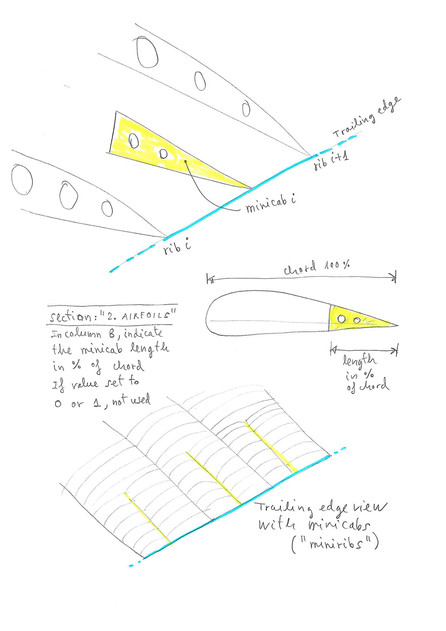 Trailing edge
rib i+1
minicab i
rib i
chord 100%
section: "2. AIRFOILS"
In column 8, indicate
the minicab length
in % of chord
If value set to
0 or 1, not used
length
in %
of chord
Trailing edge view
with minicabs
("miniribs")